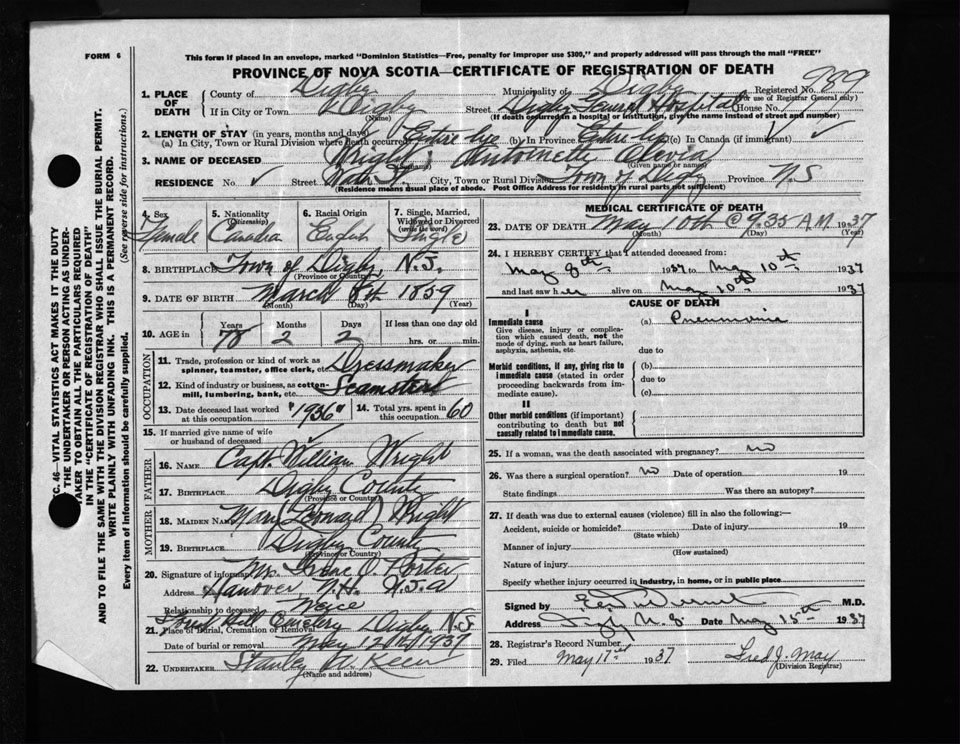 FORM 6
This form if placed in an envelope, marked "Dominion Statistics—Free, penalty for improper use $300," and properly addressed will pass through the mail "FREE"
PROVINCE OF NOVA SCOTIA—CERTIFICATE OF REGISTRATION OF DEATH
1. PLACE OF DEATH
County of Digby Municipality of Digby Registered No. 989
(For use of Registrar General only)
If in City or Town Digby Street Digby General Hospital House No.
(Name) (If death occurred in a hospital or institution, give the name instead of street and number)
2. LENGTH OF STAY (in years, months and days)
(a) In City, Town or Rural Division where death occurred Entire life (b) In Province Entire life (c) In Canada (if immigrant) ✓ ✓
3. NAME OF DECEASED Wright Antoinette
(Given name or names)
RESIDENCE No. ✓ Street Water St. City, Town or Rural Division Town of Digby Province N.S
(Residence means usual place of abode. Post Office Address for residents in rural parts not sufficient)
4. Sex
Female
5. Nationality
(Citizenship)
Canadia
6. Racial Origin
English
7. Single, Married, Widowed or Divorced
(write the word)
Single
8. BIRTHPLACE Town of Digby, N.S.
(Province or Country)
9. DATE OF BIRTH March 8th 1859
(Month) (Day) (Year)
10. AGE in
Years Months Days If less than one day old
78 2 2 hrs. or min.
OCCUPATION
11. Trade, profession or kind of work as spinner, teamster, office clerk, etc. Dressmaker
12. Kind of industry or business, as cotton-mill, lumbering, bank, etc. Seamstert
13. Date deceased last worked at this occupation "1936" 14. Total yrs. spent in this occupation 60
15. If married give name of wife or husband of deceased
FATHER
16. NAME Capt. William Wright
17. BIRTHPLACE Digby County
(Province or Country)
MOTHER
18. MAIDEN NAME Mary (Leonard) Wright
19. BIRTHPLACE Digby County
(Province or Country)
20. Signature of informant Mrs. Irene O. Porter
Address Hanover, N.H. U.S.a
Relationship to deceased Neice
21. Place of Burial, Cremation or Removal Forest Hill Cemetery Digby N.S.
Date of burial or removal May 12th 1937
22. UNDERTAKER Stanley
(Name and address)
MEDICAL CERTIFICATE OF DEATH
23. DATE OF DEATH May 10th @ 9.35 A.M. 1937
(Month) (Day) (Year)
24. I HEREBY CERTIFY that I attended deceased from:
May 8th 1937 to May 10th 1937
and last saw her alive on May 10th 1937
CAUSE OF DEATH
I
Immediate cause (a) Pneumonia
Give disease, injury or complication which caused death, not the mode of dying, such as heart failure, asphyxia, asthenia, etc.
due to
Morbid conditions, if any, giving rise to immediate cause (stated in order proceeding backwards from immediate cause).
(b)
due to
(c)
II
Other morbid conditions (if important) contributing to death but not causally related to immediate cause.
25. If a woman, was the death associated with pregnancy? no
26. Was there a surgical operation? No Date of operation 19
State findings Was there an autopsy?
27. If death was due to external causes (violence) fill in also the following:—
Accident, suicide or homicide? Date of injury 19
(State which)
Manner of injury
(How sustained)
Nature of injury
Specify whether injury occurred in industry, in home, or in public place
Signed by M.D.
Address Digby N.S. Date May 15th 1937
28. Registrar's Record Number
29. Filed May 17th 1937 Fred J. May
(Division Registrar)
C. 46—VITAL STATISTICS ACT MAKES IT THE DUTY
THE UNDERTAKER OR PERSON ACTING AS UNDERTAKER TO OBTAIN ALL THE PARTICULARS REQUIRED
IN THE "CERTIFICATE OF REGISTRATION OF DEATH"
AND TO FILE THE SAME WITH THE DIVISION REGISTRAR WHO SHALL ISSUE THE BURIAL PERMIT.
WRITE PLAINLY WITH UNFADING INK. THIS IS A PERMANENT RECORD.
Every item of information should be carefully supplied. (See reverse side for instructions.)